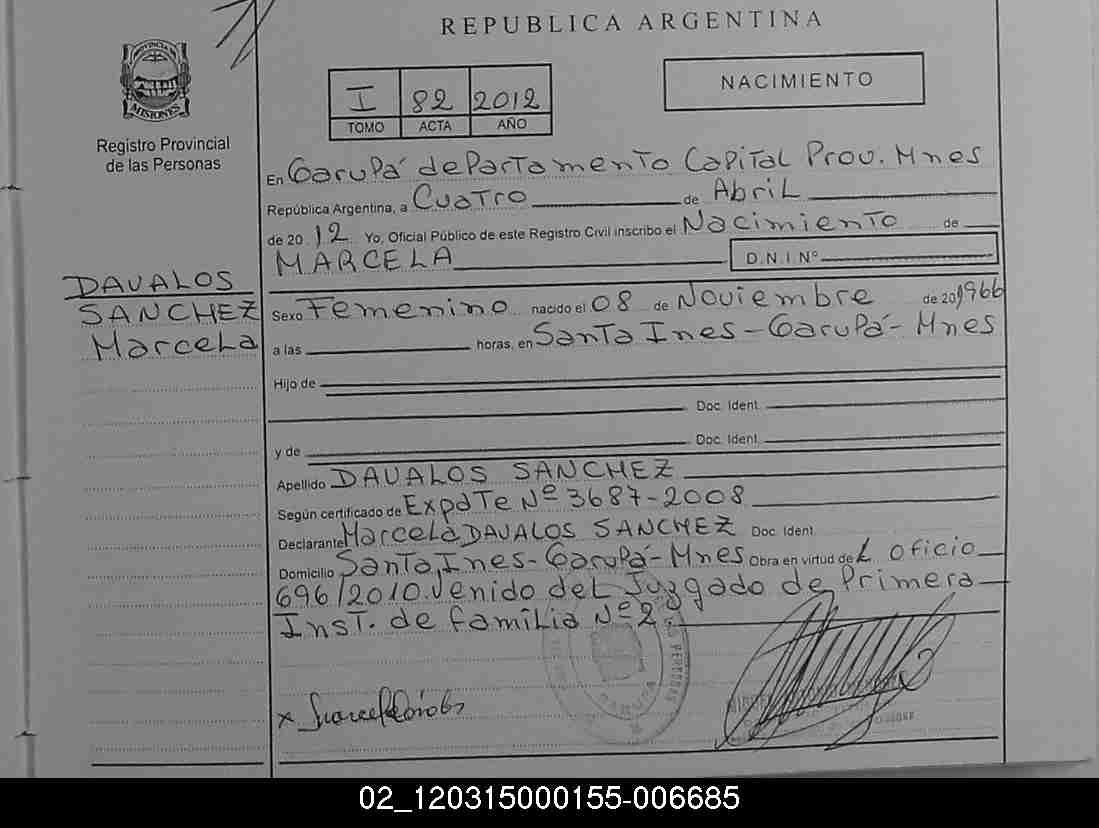 REPUBLICA ARGENTINA
PROVINCIA DE
MISIONES
Registro Provincial
de las Personas
I 82 2012
TOMO ACTA AÑO
NACIMIENTO
En Garupá departamento Capital Prov. Mnes
República Argentina, a Cuatro de Abril
de 20 12 Yo, Oficial Público de este Registro Civil inscribo el Nacimiento de
MARCELA D.N.I Nº
DAVALOS
SANCHEZ
Marcela
Sexo Femenino nacido el 08 de Noviembre de 20 1966
a las horas, en Santa Ines - Garupá - Mnes
Hijo de
Doc. Ident.
y de Doc. Ident.
Apellido DAVALOS SANCHEZ
Según certificado de ExpdTe Nº 3687-2008
Declarante Marcela DAVALOS SANCHEZ Doc. Ident.
Domicilio Santa Ines - Garupá - Mnes Obra en virtud de L oficio
696/2010. venido del Juzgado de Primera
Inst. de familia Nº 2.
PERSONAS
GARUPA
x
02_120315000155-006685